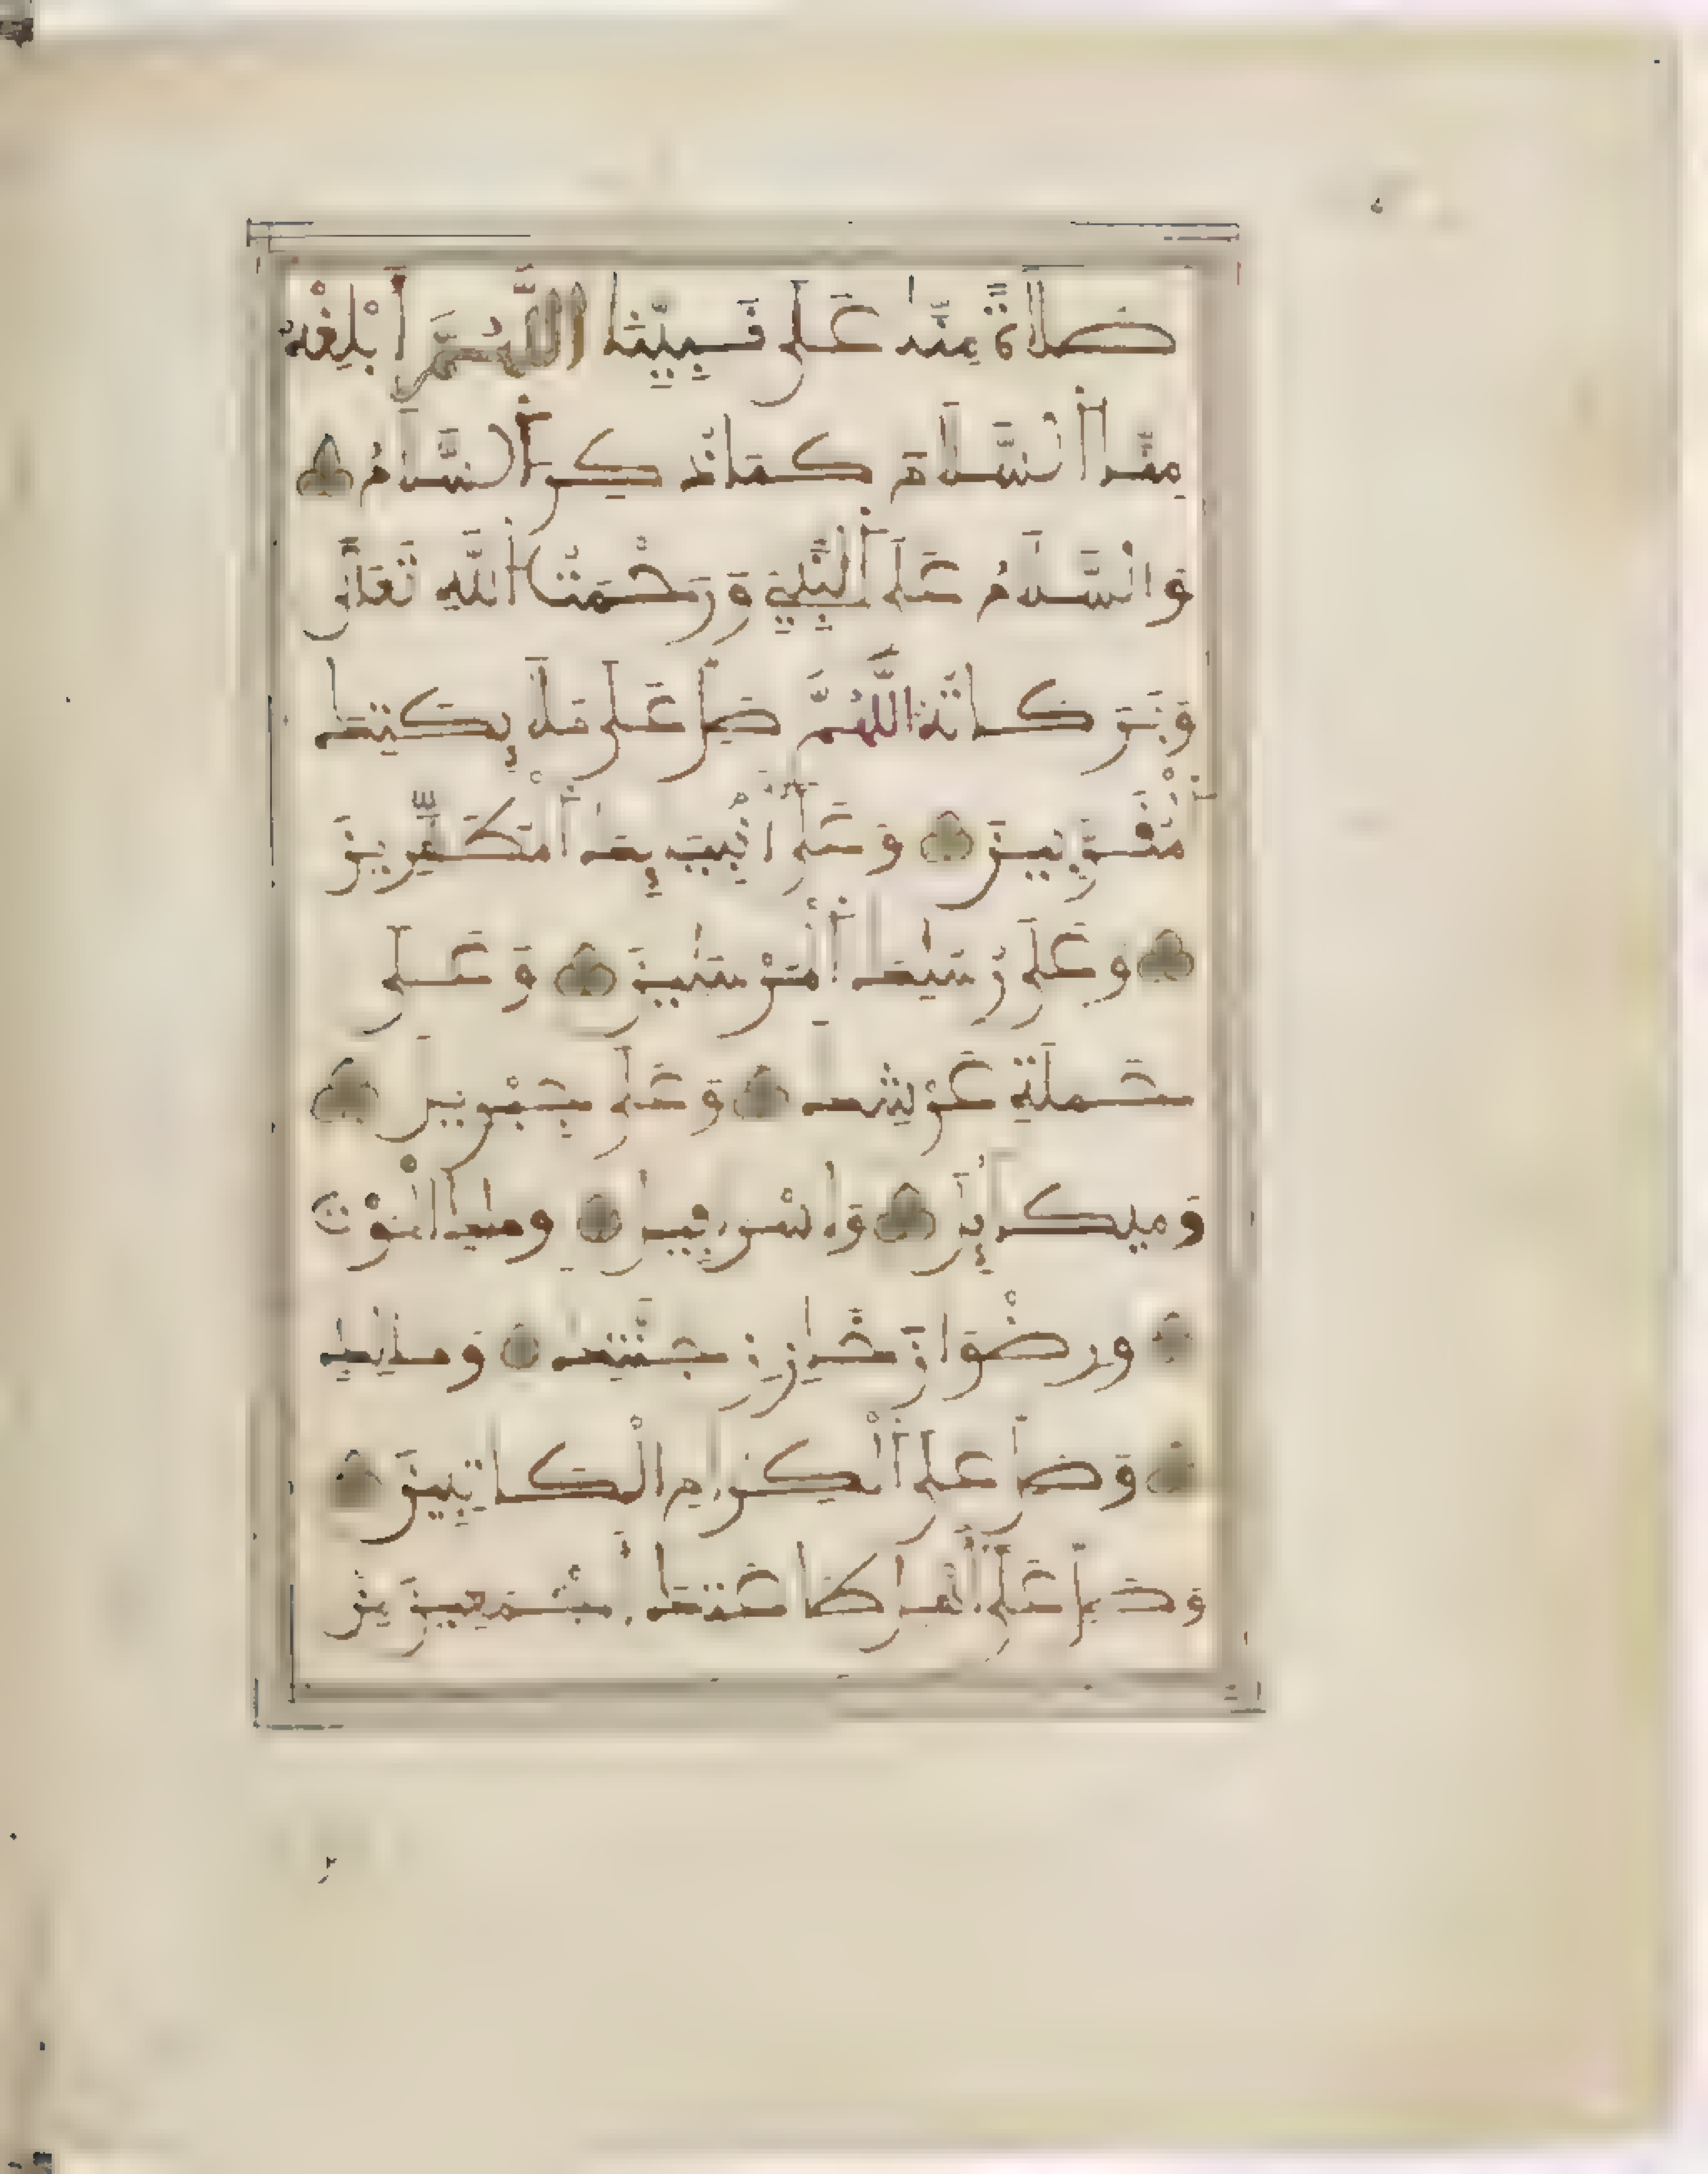 صلاة منا على نبينا اللهم أبلغه
منا السلام كما ذكر السلام
والسلام على النبي ورحمت الله تعلى
وبركاته اللهم صل على ملائكتك
المقربين وعلى أنبيائك المطهرين
وعلى رسلك المرسلين وعلى
حملة عرشك وعلى جبريل
وميكائيل وإسرافيل وملك الموت
ورضوان خازن جنتك ومالك
وصل على الكرام الكاتبين
وصل على أهل طاعتك أجمعين من